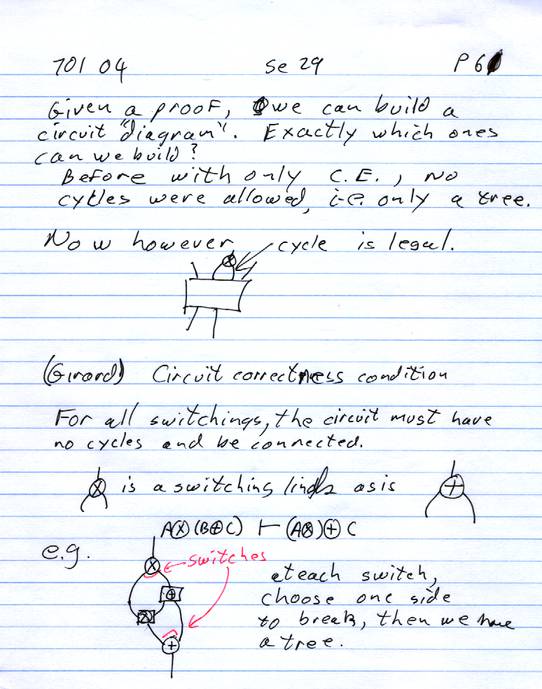 701 04 Se 29 P 6
Given a proof, we can build a
circuit "diagram". Exactly which ones
can we build?
Before with only C.E., no
cycles were allowed, i.e. only a tree.
Now however cycle is legal.
⊗
(Girard) Circuit correctness condition
For all switchings, the circuit must have
no cycles and be connected.
⊗ is a switching link as is ⊕
A⊗(B⊕C) ⊢ (A⊗)⊕C
e.g.
⊗ switches
⊕ at each switch,
choose one side
⊗ to break, then we have
⊕ a tree.